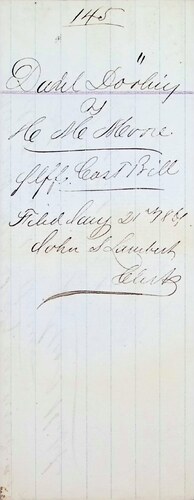 145
Dahl Dööhy
vs
H M Moore
Plff. Cost Bill
Filed Jany 21st 1861
John S Lambert
Clerk